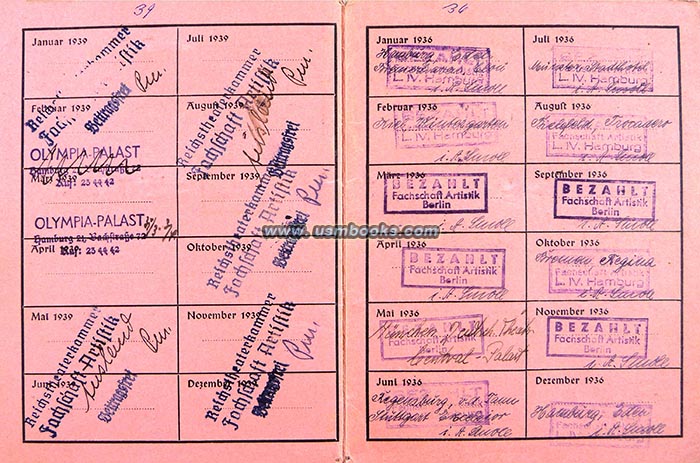 39
Januar 1939
Juli 1939
Reichstheaterkammer
Fachschaft Artistik
Beitragsfrei
Februar 1939
August 1939
Reichstheaterkammer
Fachschaft Artistik
Ausland
Beitragsfrei
OLYMPIA-PALAST
Hamburg 21, Bachstraße 72
Ruf: 23 44 42
März 1939
September 1939
OLYMPIA-PALAST
Hamburg 21, Bachstraße 72
Ruf: 23 44 42
April 1939
Oktober 1939
Reichstheaterkammer
Fachschaft Artistik
Beitragsfrei
Mai 1939
November 1939
Reichstheaterkammer
Fachschaft Artistik
Ausland
Beitragsfrei
Reichstheaterkammer
Fachschaft Artistik
Beitragsfrei
Juni 1939
Dezember 1939
36
Januar 1936
Juli 1936
Hamburg, Eden
L. IV. Hamburg
L. IV. Hamburg
Februar 1936
August 1936
Kiel, Wintergarten
Bielefeld, Trocadero
Fachschaft Artistik
L. IV. Hamburg
März 1936
September 1936
BEZAHLT
Fachschaft Artistik
Berlin
BEZAHLT
Fachschaft Artistik
Berlin
April 1936
Oktober 1936
BEZAHLT
Fachschaft Artistik
Berlin
Bremen Regina
Fachschaft Artistik
L. IV. Hamburg
Mai 1936
November 1936
München,
Central-Palast
BEZAHLT
Fachschaft Artistik
Berlin
Juni 1936
Dezember 1936
Regensburg, v.d. Tann
Stuttgart Excelsior
Hamburg, Eden
www.usmbooks.com